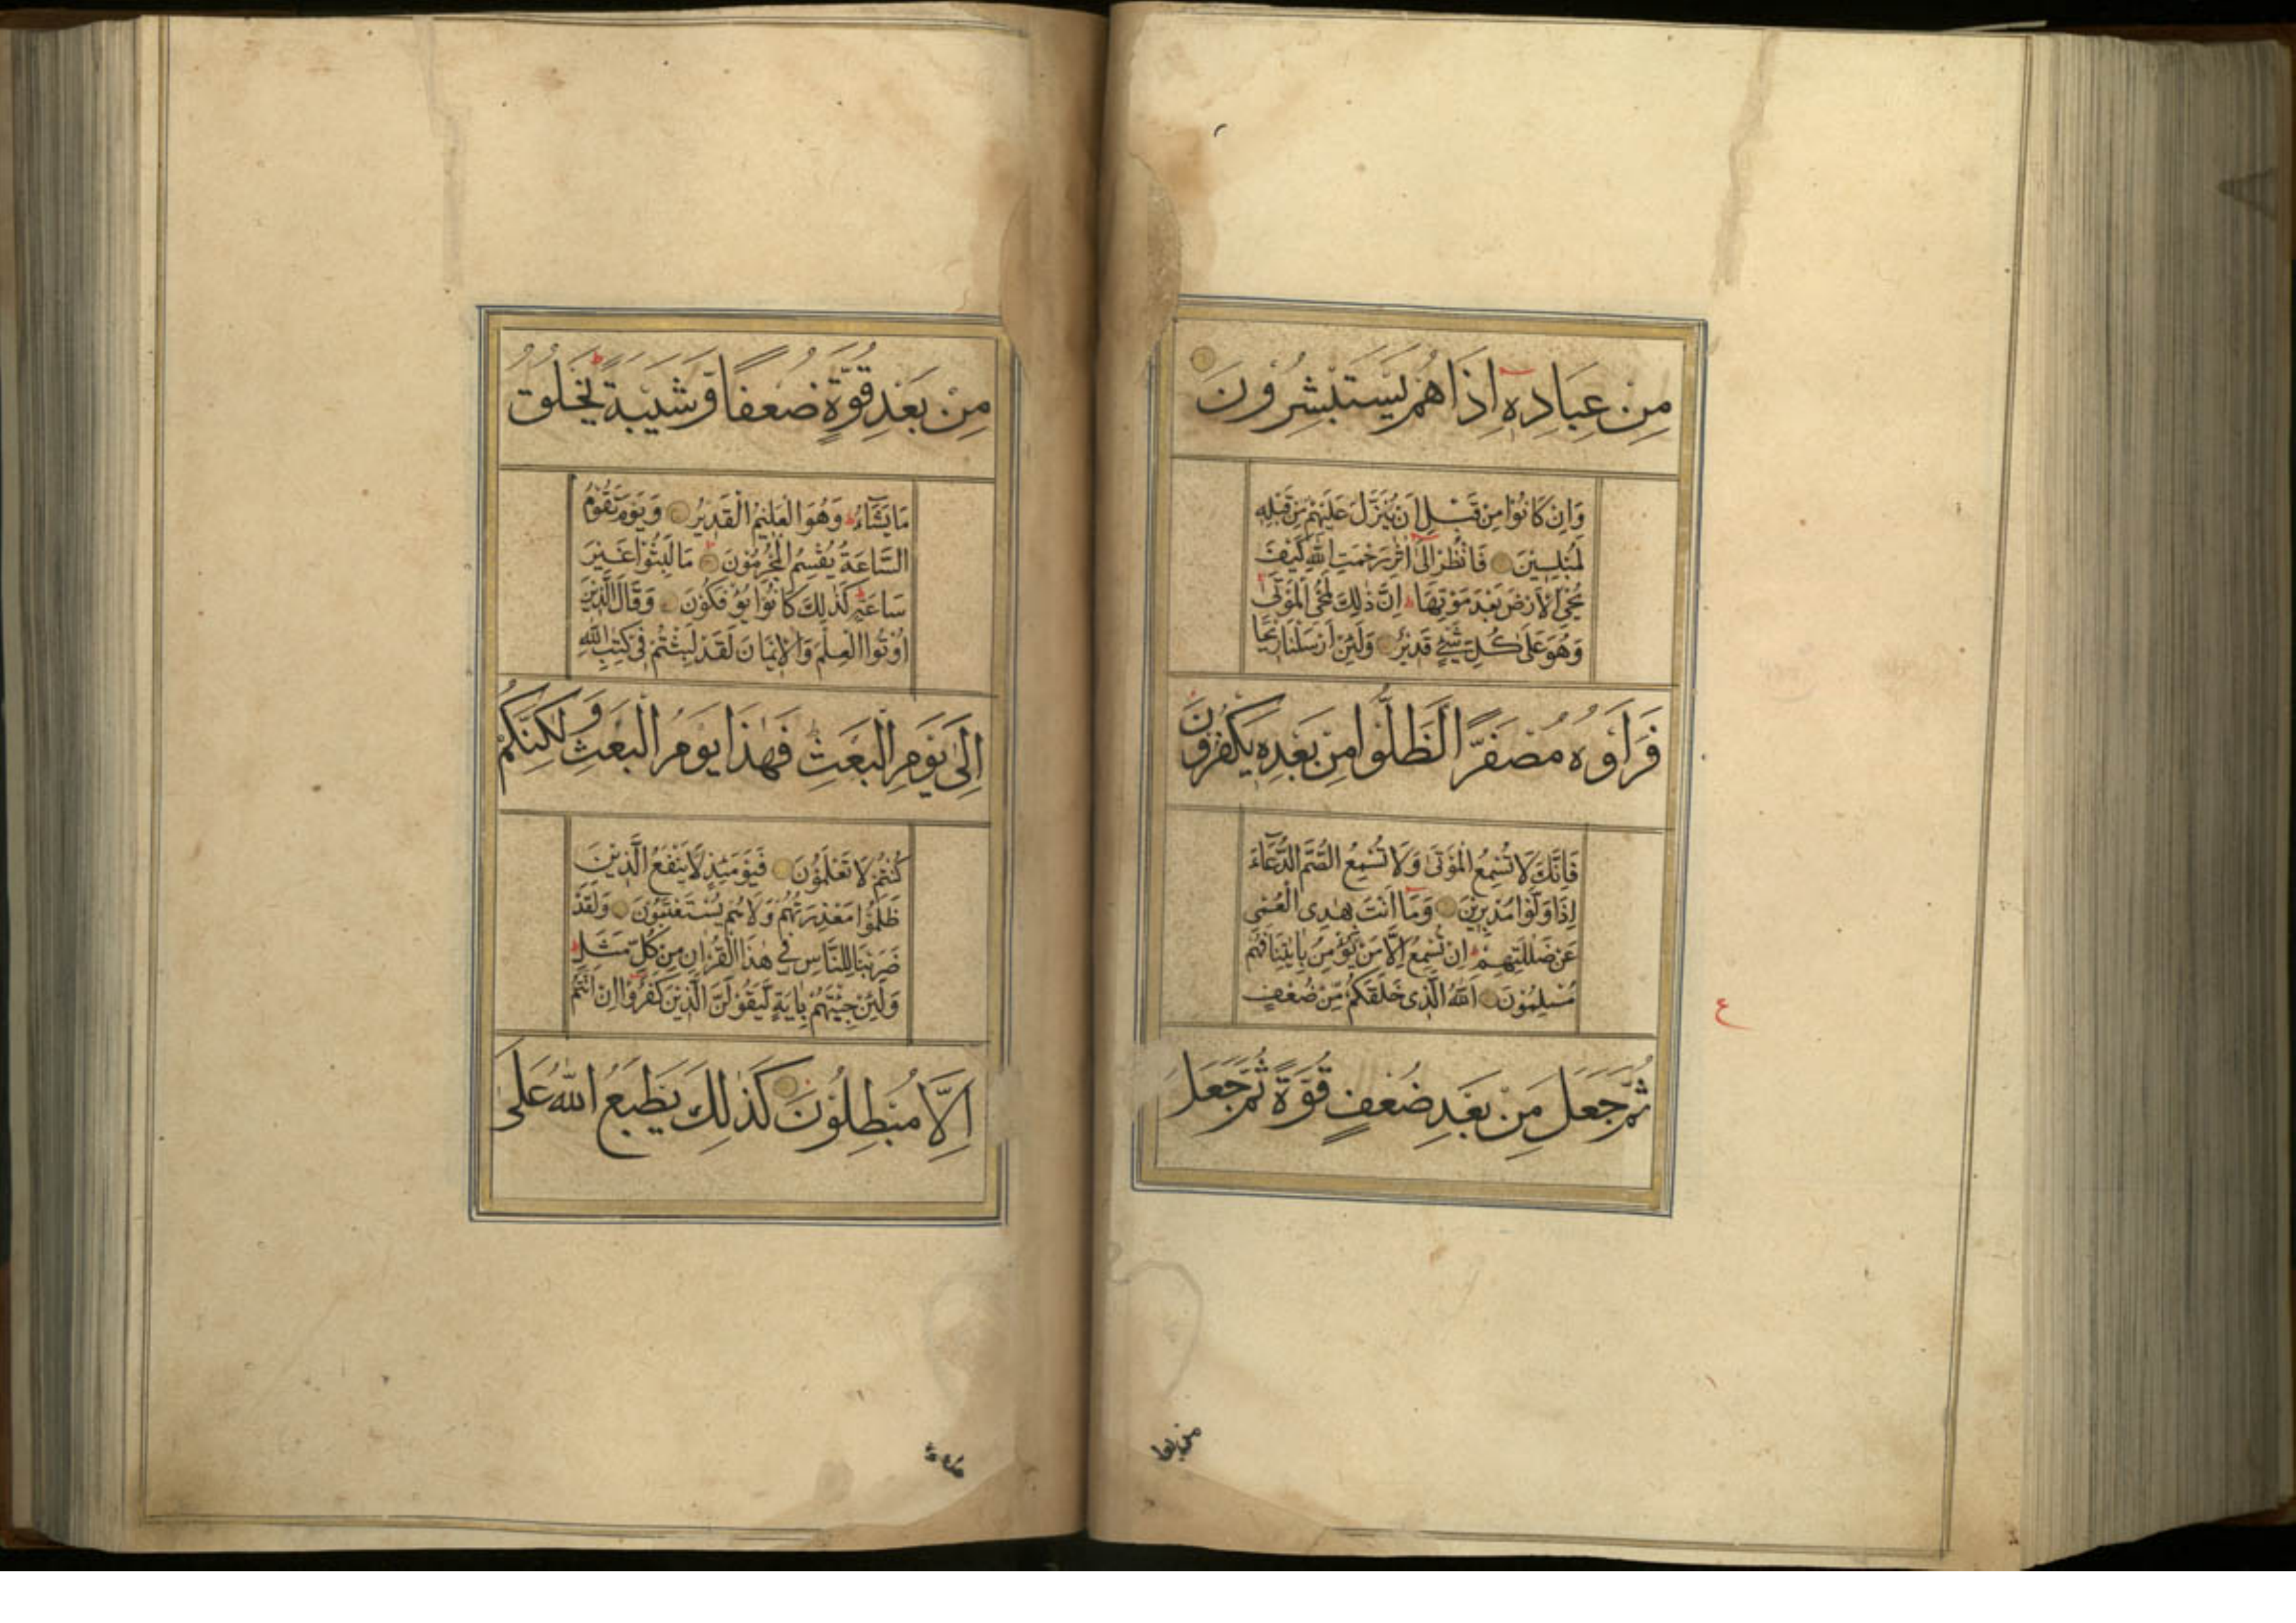 مِنْ عِبَادِهٖ اِذَا هُمْ يَسْتَبْشِرُوْنَ
وَاِنْ كَانُوْا مِنْ قَبْلِ اَنْ يُنَزَّلَ عَلَيْهِمْ مِنْ قَبْلِهٖ
لَمُبْلِسِيْنَ فَانْظُرْ اِلٰى اَثَرِ رَحْمَتِ اللّٰهِ كَيْفَ
يُحْيِ الْاَرْضَ بَعْدَ مَوْتِهَا ط اِنَّ ذٰلِكَ لَمُحْيِ الْمَوْتٰى
وَهُوَ عَلٰى كُلِّ شَيْءٍ قَدِيْرٌ وَلَئِنْ اَرْسَلْنَا رِيْحًا
فَرَاَوْهُ مُصْفَرًّا لَظَلُّوْا مِنْ بَعْدِهٖ يَكْفُرُوْنَ
فَاِنَّكَ لَا تُسْمِعُ الْمَوْتٰى وَلَا تُسْمِعُ الصُّمَّ الدُّعَآءَ
اِذَا وَلَّوْا مُدْبِرِيْنَ وَمَا اَنْتَ بِهٰدِى الْعُمْىِ
عَنْ ضَلٰلَتِهِمْ ط اِنْ تُسْمِعُ اِلَّا مَنْ يُؤْمِنُ بِاٰيٰتِنَا فَهُمْ
مُسْلِمُوْنَ اَللّٰهُ الَّذِى خَلَقَكُمْ مِّنْ ضُعْفٍ
ع
ثُمَّ جَعَلَ مِنْ بَعْدِ ضُعْفٍ قُوَّةً ثُمَّ جَعَلَ
من بعد
مِنْ بَعْدِ قُوَّةٍ ضُعْفًا وَّشَيْبَةً ط يَخْلُقُ
مَا يَشَآءُ ط وَهُوَ الْعَلِيْمُ الْقَدِيْرُ وَيَوْمَ تَقُوْمُ
السَّاعَةُ يُقْسِمُ الْمُجْرِمُوْنَ مَا لَبِثُوْا غَيْرَ
سَاعَةٍ ط كَذٰلِكَ كَانُوْا يُؤْفَكُوْنَ وَقَالَ الَّذِيْنَ
اُوْتُوا الْعِلْمَ وَالْاِيْمَانَ لَقَدْ لَبِثْتُمْ فِىْ كِتٰبِ اللّٰهِ
اِلٰى يَوْمِ الْبَعْثِ فَهٰذَا يَوْمُ الْبَعْثِ وَلٰكِنَّكُمْ
كُنْتُمْ لَا تَعْلَمُوْنَ فَيَوْمَئِذٍ لَّا يَنْفَعُ الَّذِيْنَ
ظَلَمُوْا مَعْذِرَتُهُمْ وَلَا هُمْ يُسْتَعْتَبُوْنَ وَلَقَدْ
ضَرَبْنَا لِلنَّاسِ فِىْ هٰذَا الْقُرْاٰنِ مِنْ كُلِّ مَثَلٍ ط
وَلَئِنْ جِئْتَهُمْ بِاٰيَةٍ لَّيَقُوْلَنَّ الَّذِيْنَ كَفَرُوْا اِنْ اَنْتُمْ
اِلَّا مُبْطِلُوْنَ كَذٰلِكَ يَطْبَعُ اللّٰهُ عَلٰى